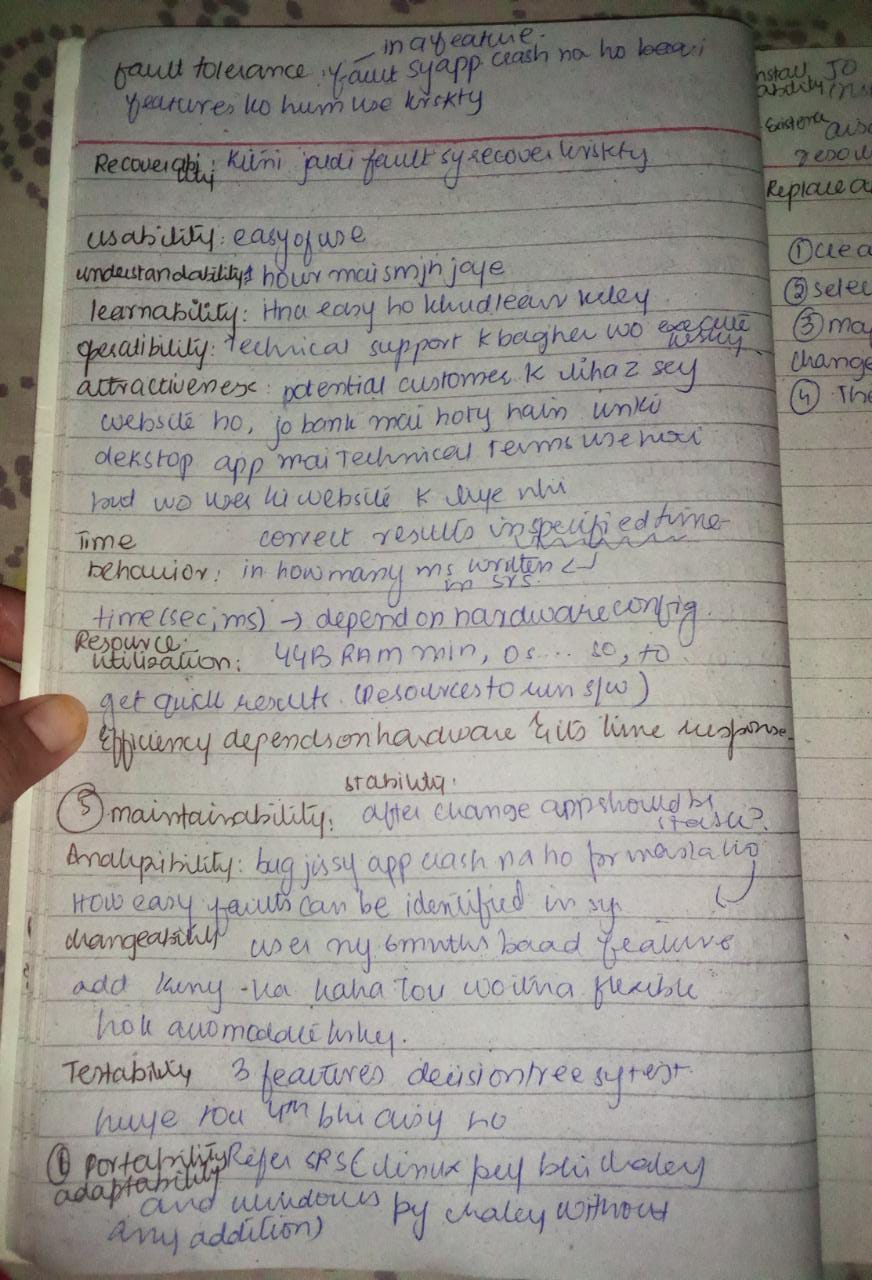 in a feature.
fault tolerance: fault sy app crash na ho baqi
features ko hum use krskty
Recoverability: Kitni jaldi fault sy recover krskty
usability: easy of use
understandability: hour mai smjh jaye
learnability: itna easy ho khud learn krley
operatibility: Technical support k bagher wo execute krsky
attractiveness: potential customers k lihaz sey
website ho, jo bank mai hoty hain unki
dekstop app mai Technical terms use hoti
but wo user ki website k liye nhi
Time correct results in specified time
behavior: in how many ms written
in SRS.
time(sec, ms) → depend on hardware config.
Resource
utilization: 4GB RAM min, OS... so, to
get quick results. (Resources to run s/w)
Efficiency depends on hardware & its time response.
stability.
⑤ maintainability: after change app should be
stable.
Analyzibility: bug jissy app crash na ho pr masla ho
How easy faults can be identified in sys
changeability user ny 6 mnths baad feature
add krny ka kaha tou wo itna flexible
ho k accomodate krsky.
Testability 3 features decision tree sy test
huye tou 4th bhi easy ho
portability Refer SRS (linux pey bhi chaley
adaptability
and windows py chaley without
any addition)
install
ability
JO
Existence
resou
Replacea
① crea
② selec
③ may
change
④ The